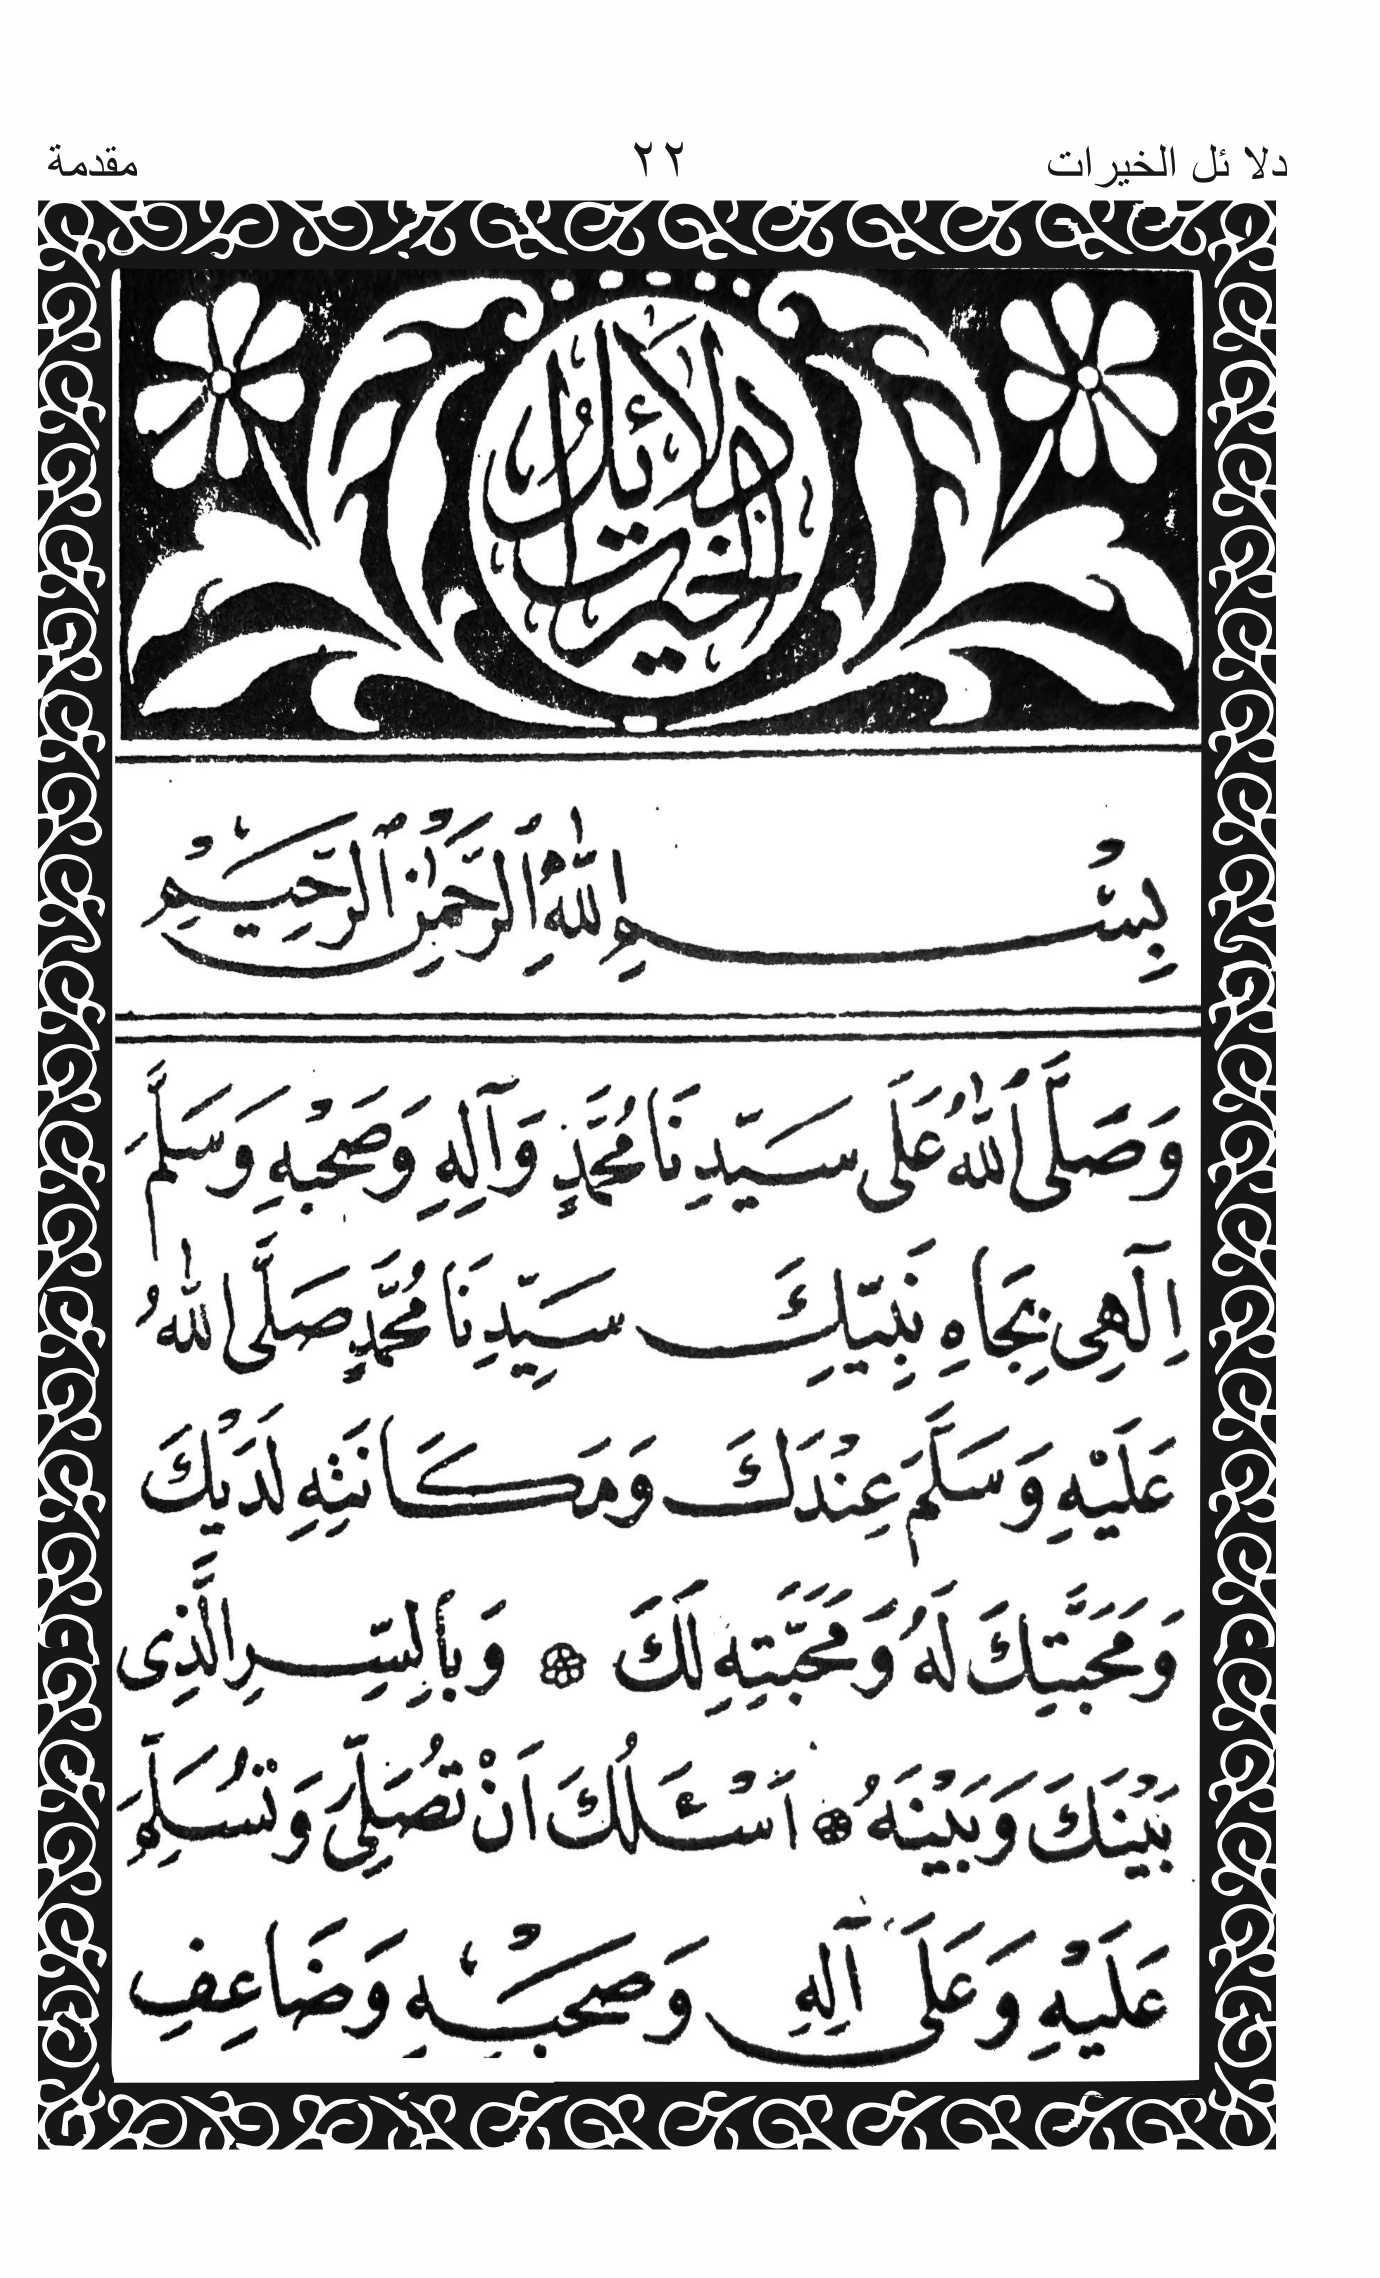 دلا ئل الخيرات ٢٢ مقدمة
دَلَائِلُ
الْخَيْرَاتِ
بِسْمِ اللّٰهِ الرَّحْمٰنِ الرَّحِيْمِ
وَصَلَّى اللّٰهُ عَلَى سَيِّدِنَا مُحَمَّدٍ وَآلِهِ وَصَحْبِهِ وَسَلَّمَ
اِلٓهِى بِجَاهِ نَبِيِّكَ سَيِّدِنَا مُحَمَّدٍ صَلَّى اللّٰهُ
عَلَيْهِ وَسَلَّمَ عِنْدَكَ وَمَكَانَتِهِ لَدَيْكَ
وَمَحَبَّتِكَ لَهُ وَمَحَبَّتِهِ لَكَ ۞ وَبِالسِّرِ الَّذِى
بَيْنَكَ وَبَيْنَهُ ۞ اَسْئَلُكَ اَنْ تُصَلِّىَ وَتُسَلِّمَ
عَلَيْهِ وَعَلَى آلِهِ وَصَحْبِهِ وَضَاعِفِ